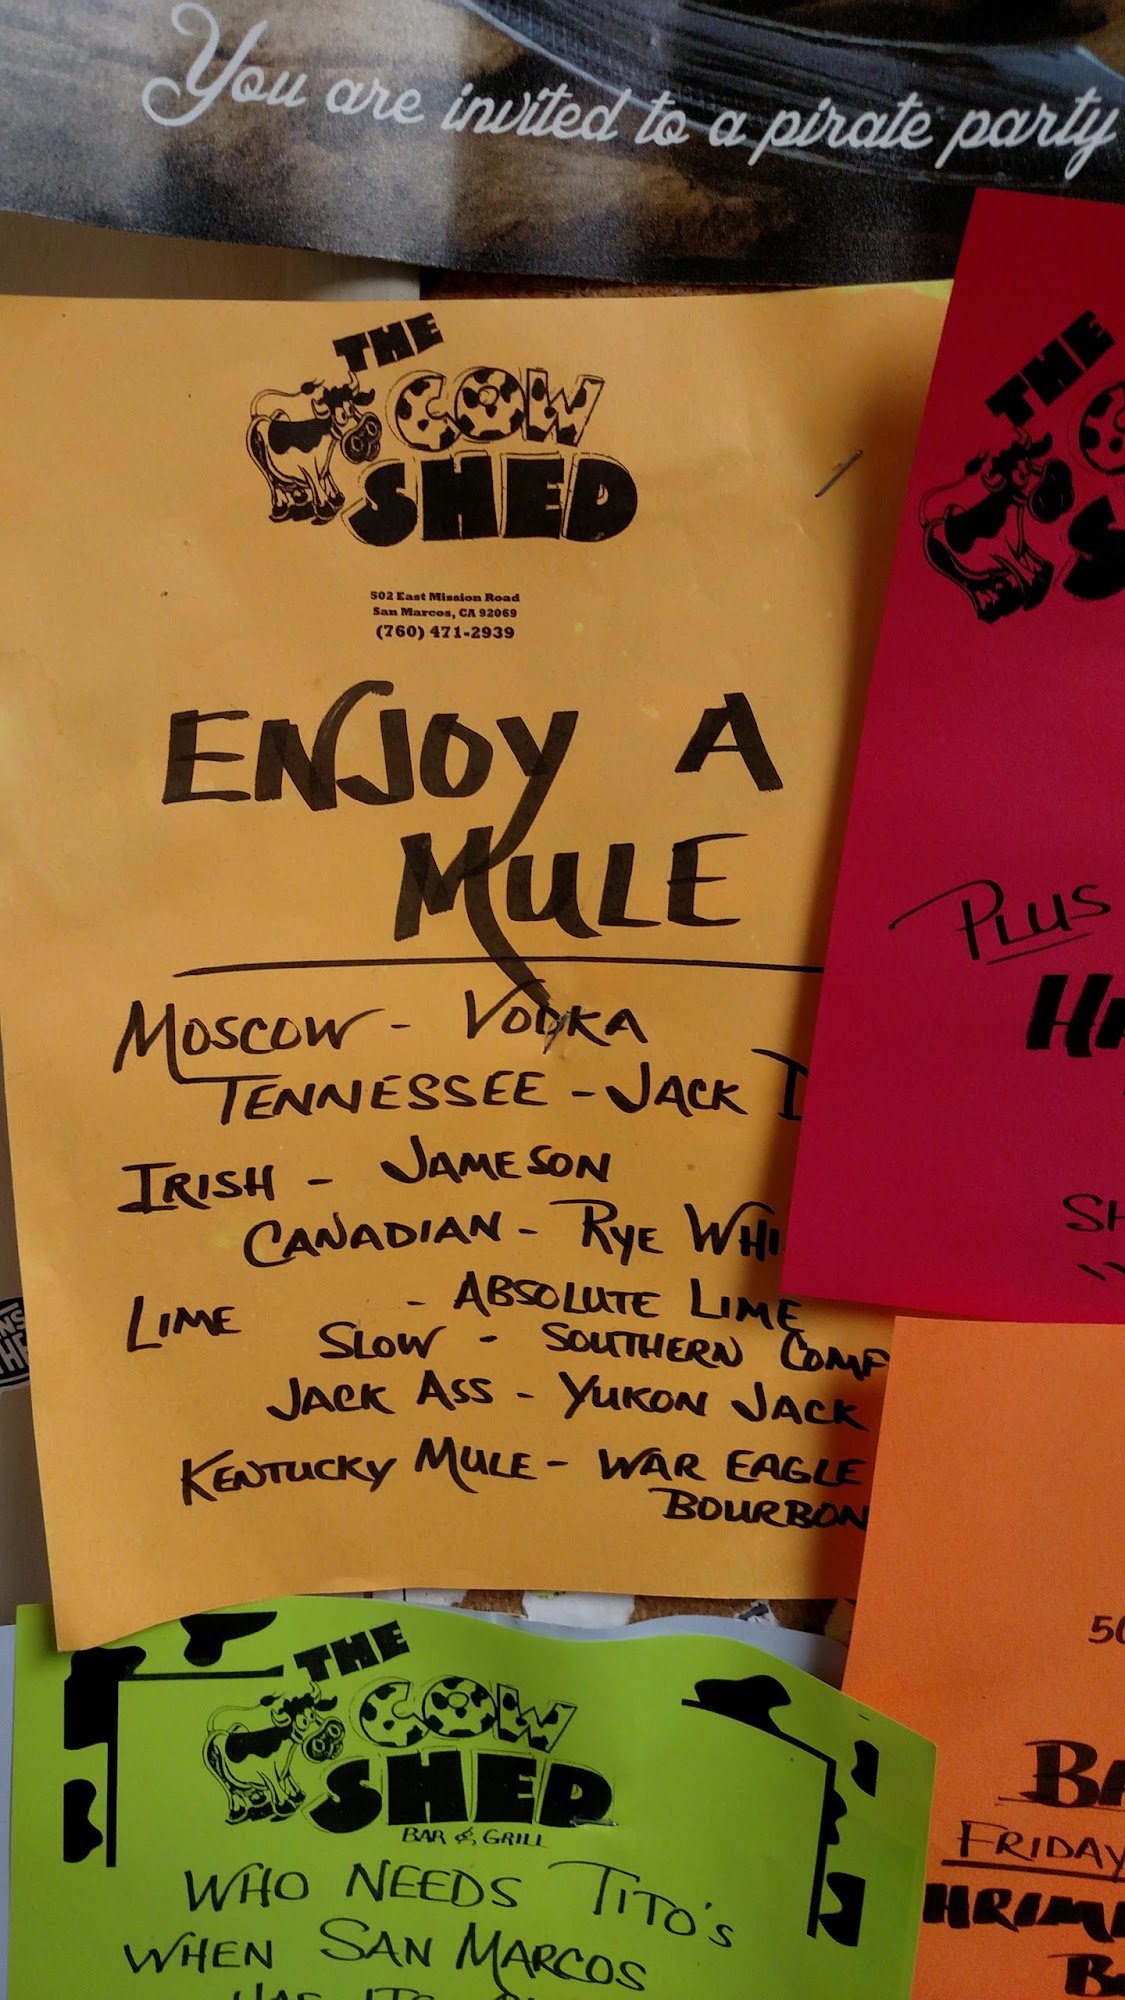 You are invited to a pirate party
THE
COW
SHED
502 East Mission Road
San Marcos, CA 92069
(760) 471-2939
ENJOY A
MULE
MOSCOW - VODKA
TENNESSEE - JACK
IRISH - JAMESON
CANADIAN - RYE WHI
LIME - ABSOLUTE LIME
SLOW - SOUTHERN COMF
JACK ASS - YUKON JACK
KENTUCKY MULE - WAR EAGLE
BOURBON
THE
PLUS
HA
SH
THE
COW
SHED
BAR & GRILL
WHO NEEDS TITO'S
WHEN SAN MARCOS
50
BA
FRIDAY
HRIM